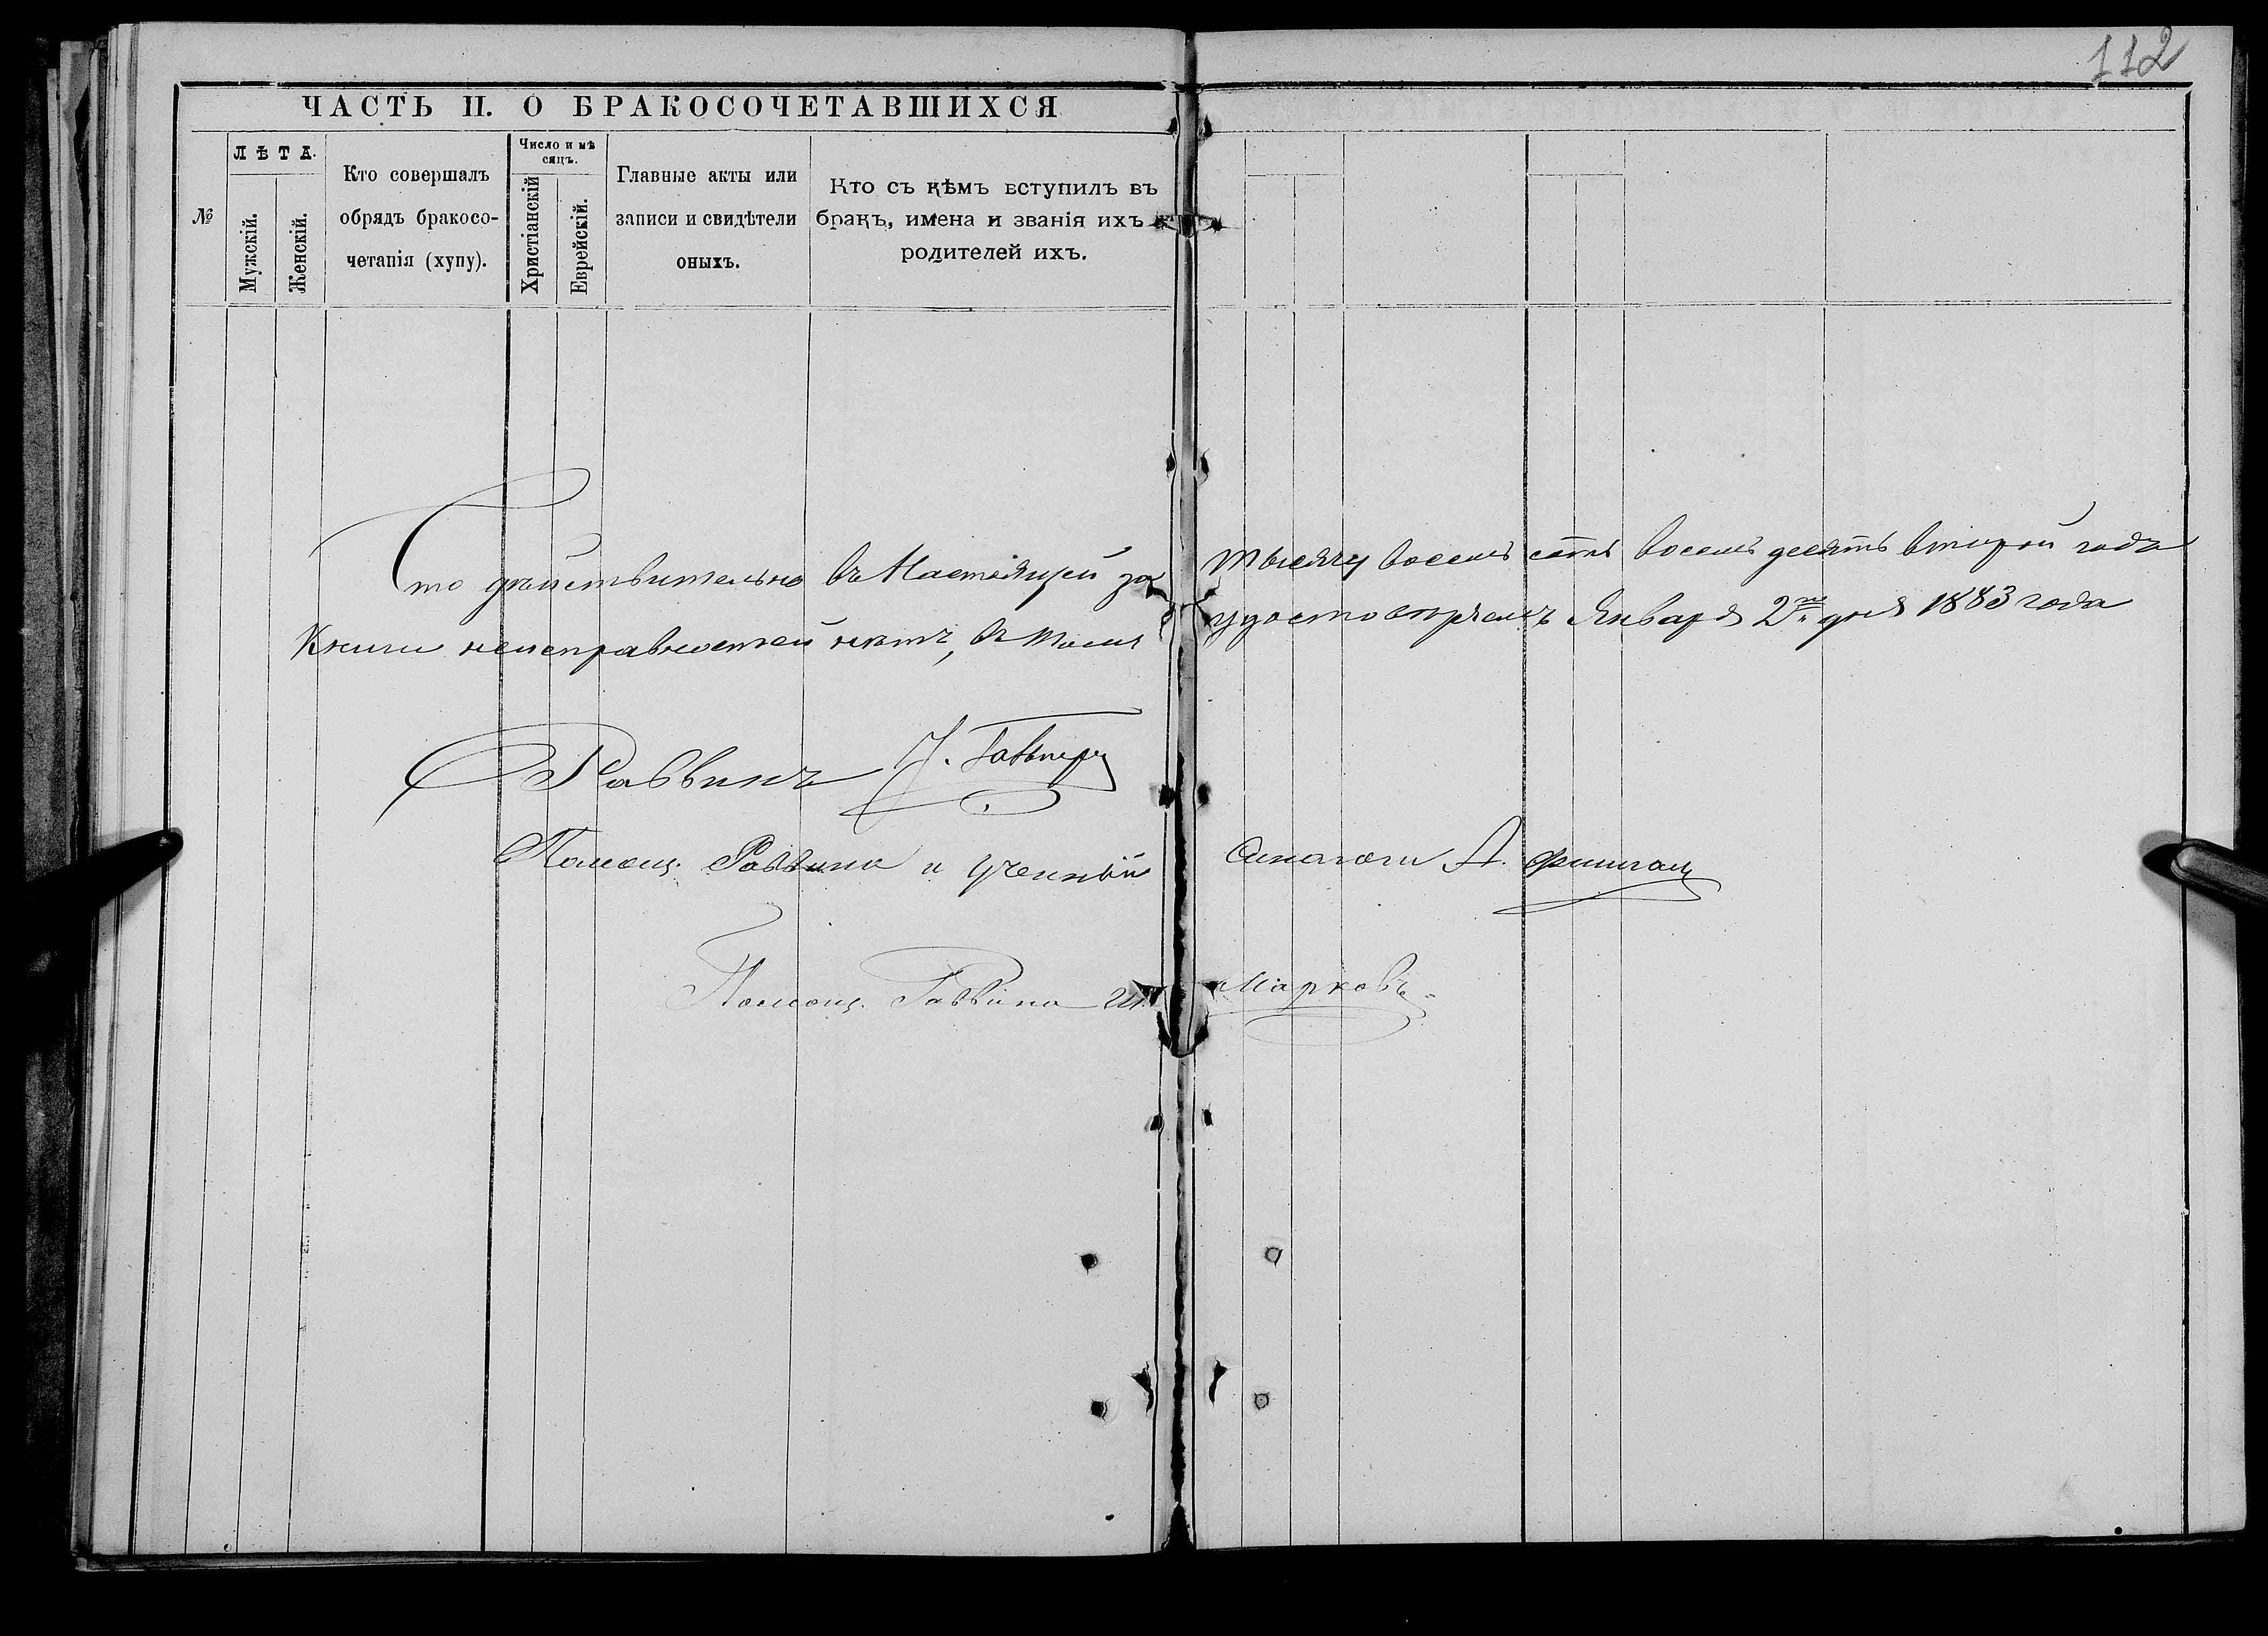 112
ЧАСТЬ II. О БРАКОСОЧЕТАВШИХСЯ
№
ЛѢТА.
Мужскій.
Женскій.
Кто совершалъ
обрядъ бракосо-
четанія (хупу).
Число и мѣ
сяцъ.
Христіанскій
Еврейскій.
Главные акты или
записи и свидѣтели
оныхъ.
Кто съ кѣмъ вступилъ въ
бракъ, имена и званія ихъ и
родителей ихъ.
Что дѣйствительно въ Настоящей за тысячу восемь сотъ восемь десятъ второй годъ
Книги неисправностей нѣтъ, въ томъ удостовѣряемъ Января 2го дня 1883 года
Раввинъ
Помощ. Раввина и ученый Синагоги А.
Помощ. Раввина Марковъ